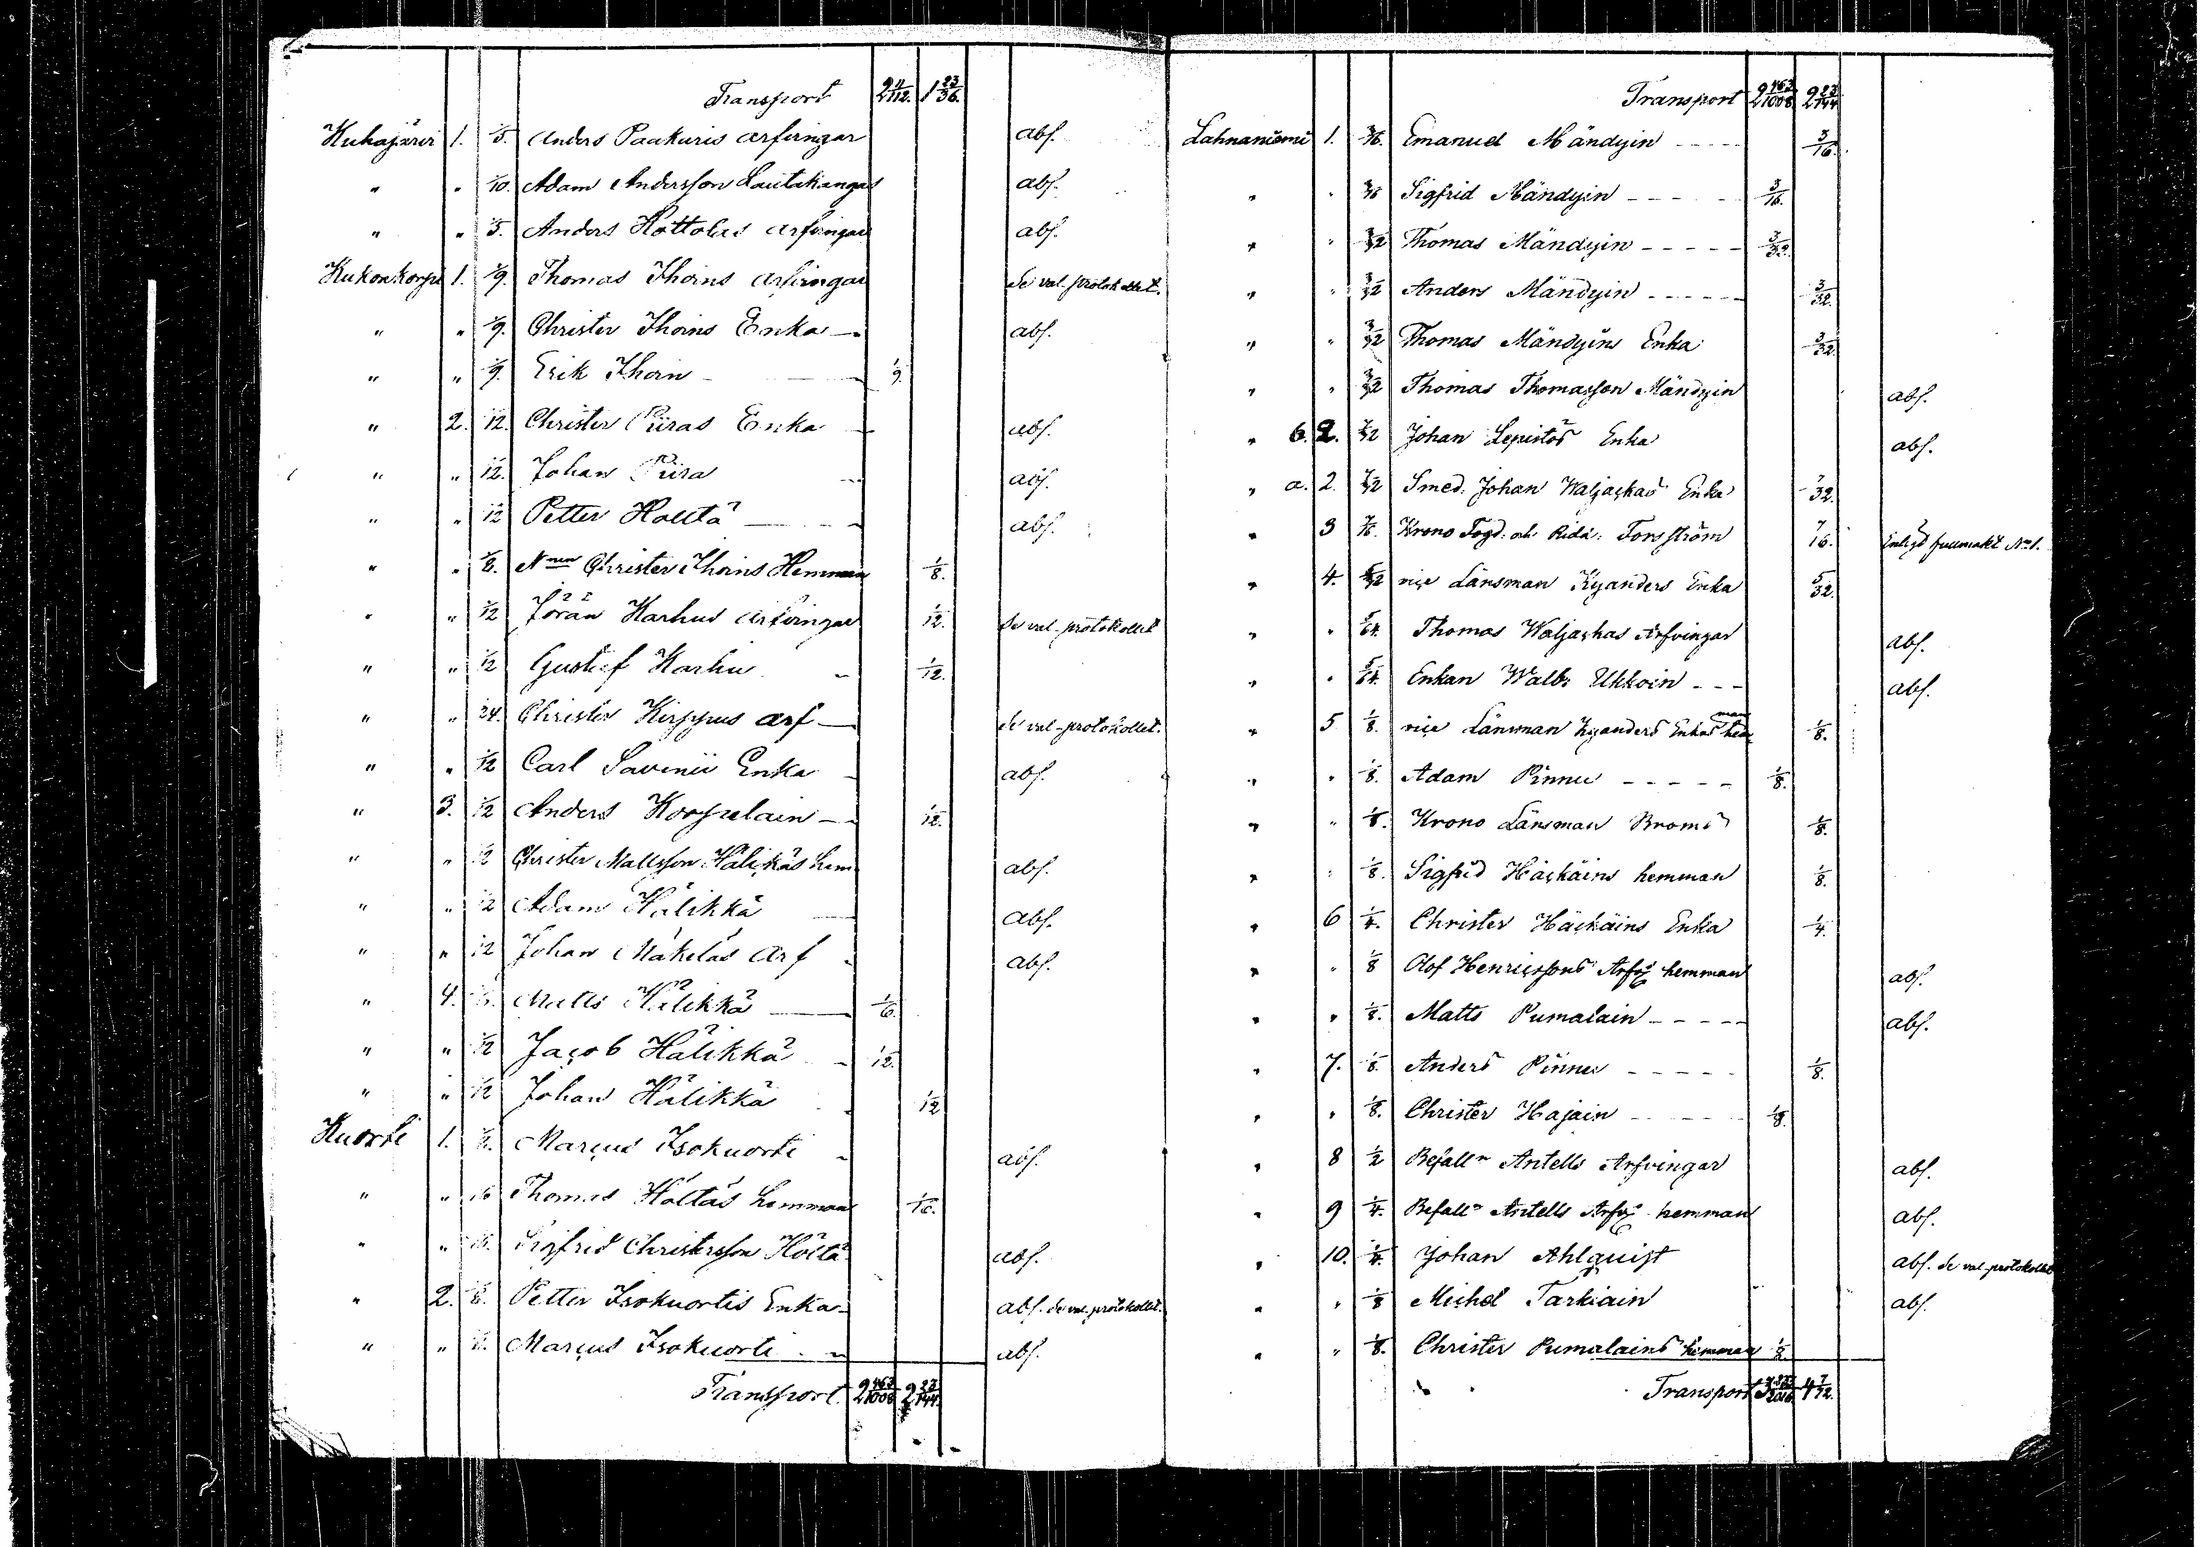 Transport 2 11/112. 1 23/36.
Kuhajärvi 1. 1/5. Anders Paakuris arfvingar abs.
" " 1/10. Adam Andersson Lautakangas abs.
" " 1/5. Anders Hottolas arfvingar abs.
Kukonkorpi 1. 1/9. Thomas Thoins arfvingar Se val-protokollet.
" " 1/9. Christer Thoins Enka — abs.
" " 1/9. Erik Thoin 1/9.
" 2. 1/12. Christer Piiras Enka abs.
" " 1/12. Johan Piira abs.
" " 1/12 Petter Holttä abs.
" " 1/8. Christer Thoins Hemman 1/8.
" " 1/12 Jöran Karhus arfvingar 1/12. Se val-protokollet
" " 1/12 Gustaf Karhu 1/12.
" " 1/24. Christer Kirppus arf — Se val-protokollet.
" " 1/12 Carl Savenii Enka abs.
" 3. 1/12 Anders Korpelain — 1/12.
" " 1/12 Christer Mattsson Hälikäs hem abs.
" " 1/12 Adam Hälikkä abs.
" " 1/12 Johan Mäkeläs arf abs.
" 4. 1/6. Matts Hälikkä 1/6.
" " 1/12 Jacob Hälikkä 1/12.
" " 1/12 Johan Hälikkä 1/12
Kuorti 1. Marcus Isokuorti abs.
" " 1/16 Thomas Holttäs hemman 1/16.
" " 1/16. Sigfrid Christersson Holttä abs.
" 2. 1/8. Petter Isokuortis Enka abs. Se val-protokollet.
" " Marcus Isokuorti abs.
Transport 2 463/1008 2 23/144.
Transport 2 463/1008 2 23/144
Lahnaniemi 1. 3/16. Emanuel Mändyin 3/16.
" " 3/16 Sigfrid Mändyin 3/16.
" " 3/32 Thomas Mändyin 3/32.
" " 3/32 Anders Mändyin 3/32.
" " 3/32 Thomas Mändyins Enka 3/32.
" " 3/32 Thomas Thomasson Mändyin abs.
" b. 2. 7/32 Johan Lepistös Enka abs.
" a. 2. 7/32 Smed. Johan Waljackas Enka 7/32.
" 3 7/16. Krono Fogd: och Ridd: Forsström 7/16. Enligt fullmakt No 1.
" 4. 5/32 vice Länsman Kyanders Enka 5/32.
" " 5/64. Thomas Waljackas Arfvingar abs.
" " 5/64. Enkan Walbr Ukkoin abs.
" 5 1/8. vice Länsman Kyanders Enkas hemman 1/8.
" " 1/8. Adam Pinnu 1/8.
" " 1/8. Krono Länsman Broms 1/8.
" " 1/8. Sigfrid Häckäins hemman 1/8.
" 6 1/4. Christer Häckäins Enka 1/4.
" " 1/8 Olof Henricssons Arfvg hemman abs.
" " 1/8. Matts Pumalain abs.
" 7. 1/8. Anders Pinnu 1/8.
" " 1/8. Christer Hajain 1/8.
" 8 1/2 Befalln Antells Arfvingar abs.
" 9 1/4. Befalln Antells Arfvg hemman abs.
" 10. 1/4. Johan Ahlquist abs. Se val-protokollet
" " 1/8 Michel Tarkiain abs.
" " 1/8. Christer Pumalains hemman 1/8.
Transport 4 7/72.